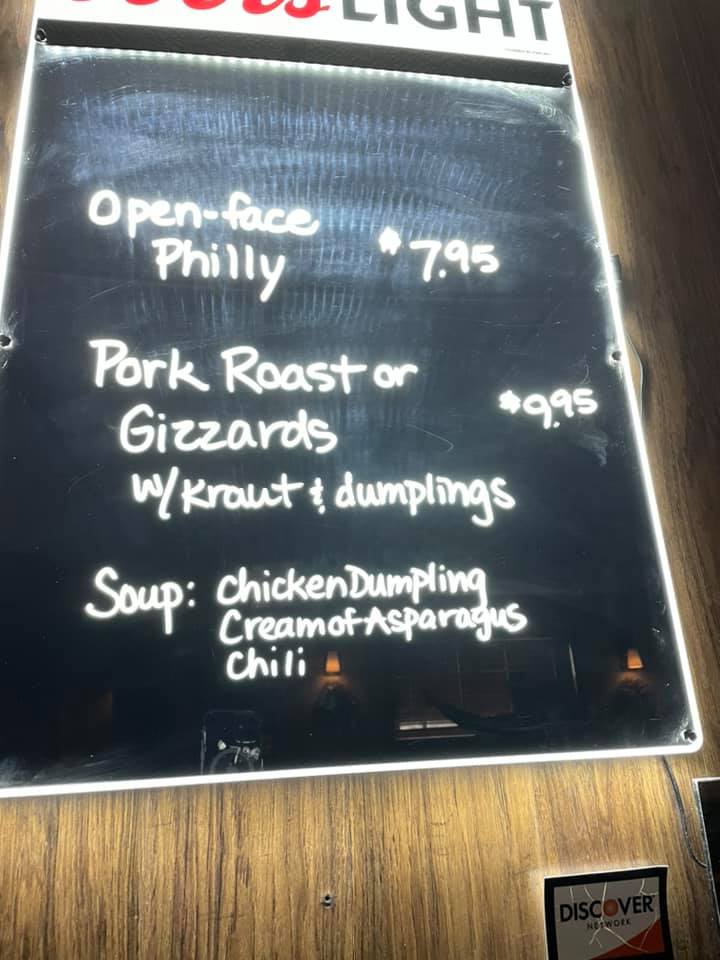 Coors LIGHT
Open-face
Philly $7.95
Pork Roast or
Gizzards $9.95
w/Kraut & dumplings
Soup: Chicken Dumpling
Cream of Asparagus
Chili
DISCOVER
NETWORK